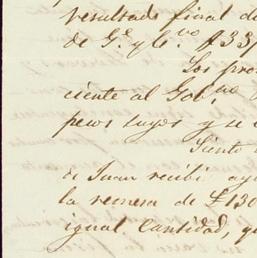 resultado final d
de G.e y C.
Los pro
ciente al Gob.no
pesos suyos y se
Siento
de Juan recibi ay
la remesa de £130
igual cantidad, q